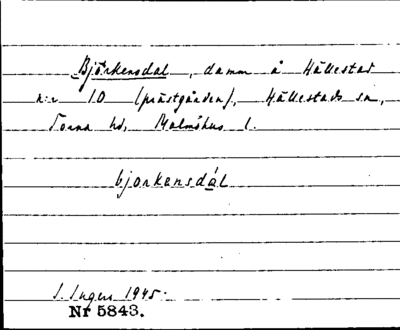 Björkensdal, damm å Hällestad
n:r 10 (prästgården), Hällestads sn,
Torna hd, Malmöhus l.
bjorkensdál
I. Ingers 1945.
Nr 5843.